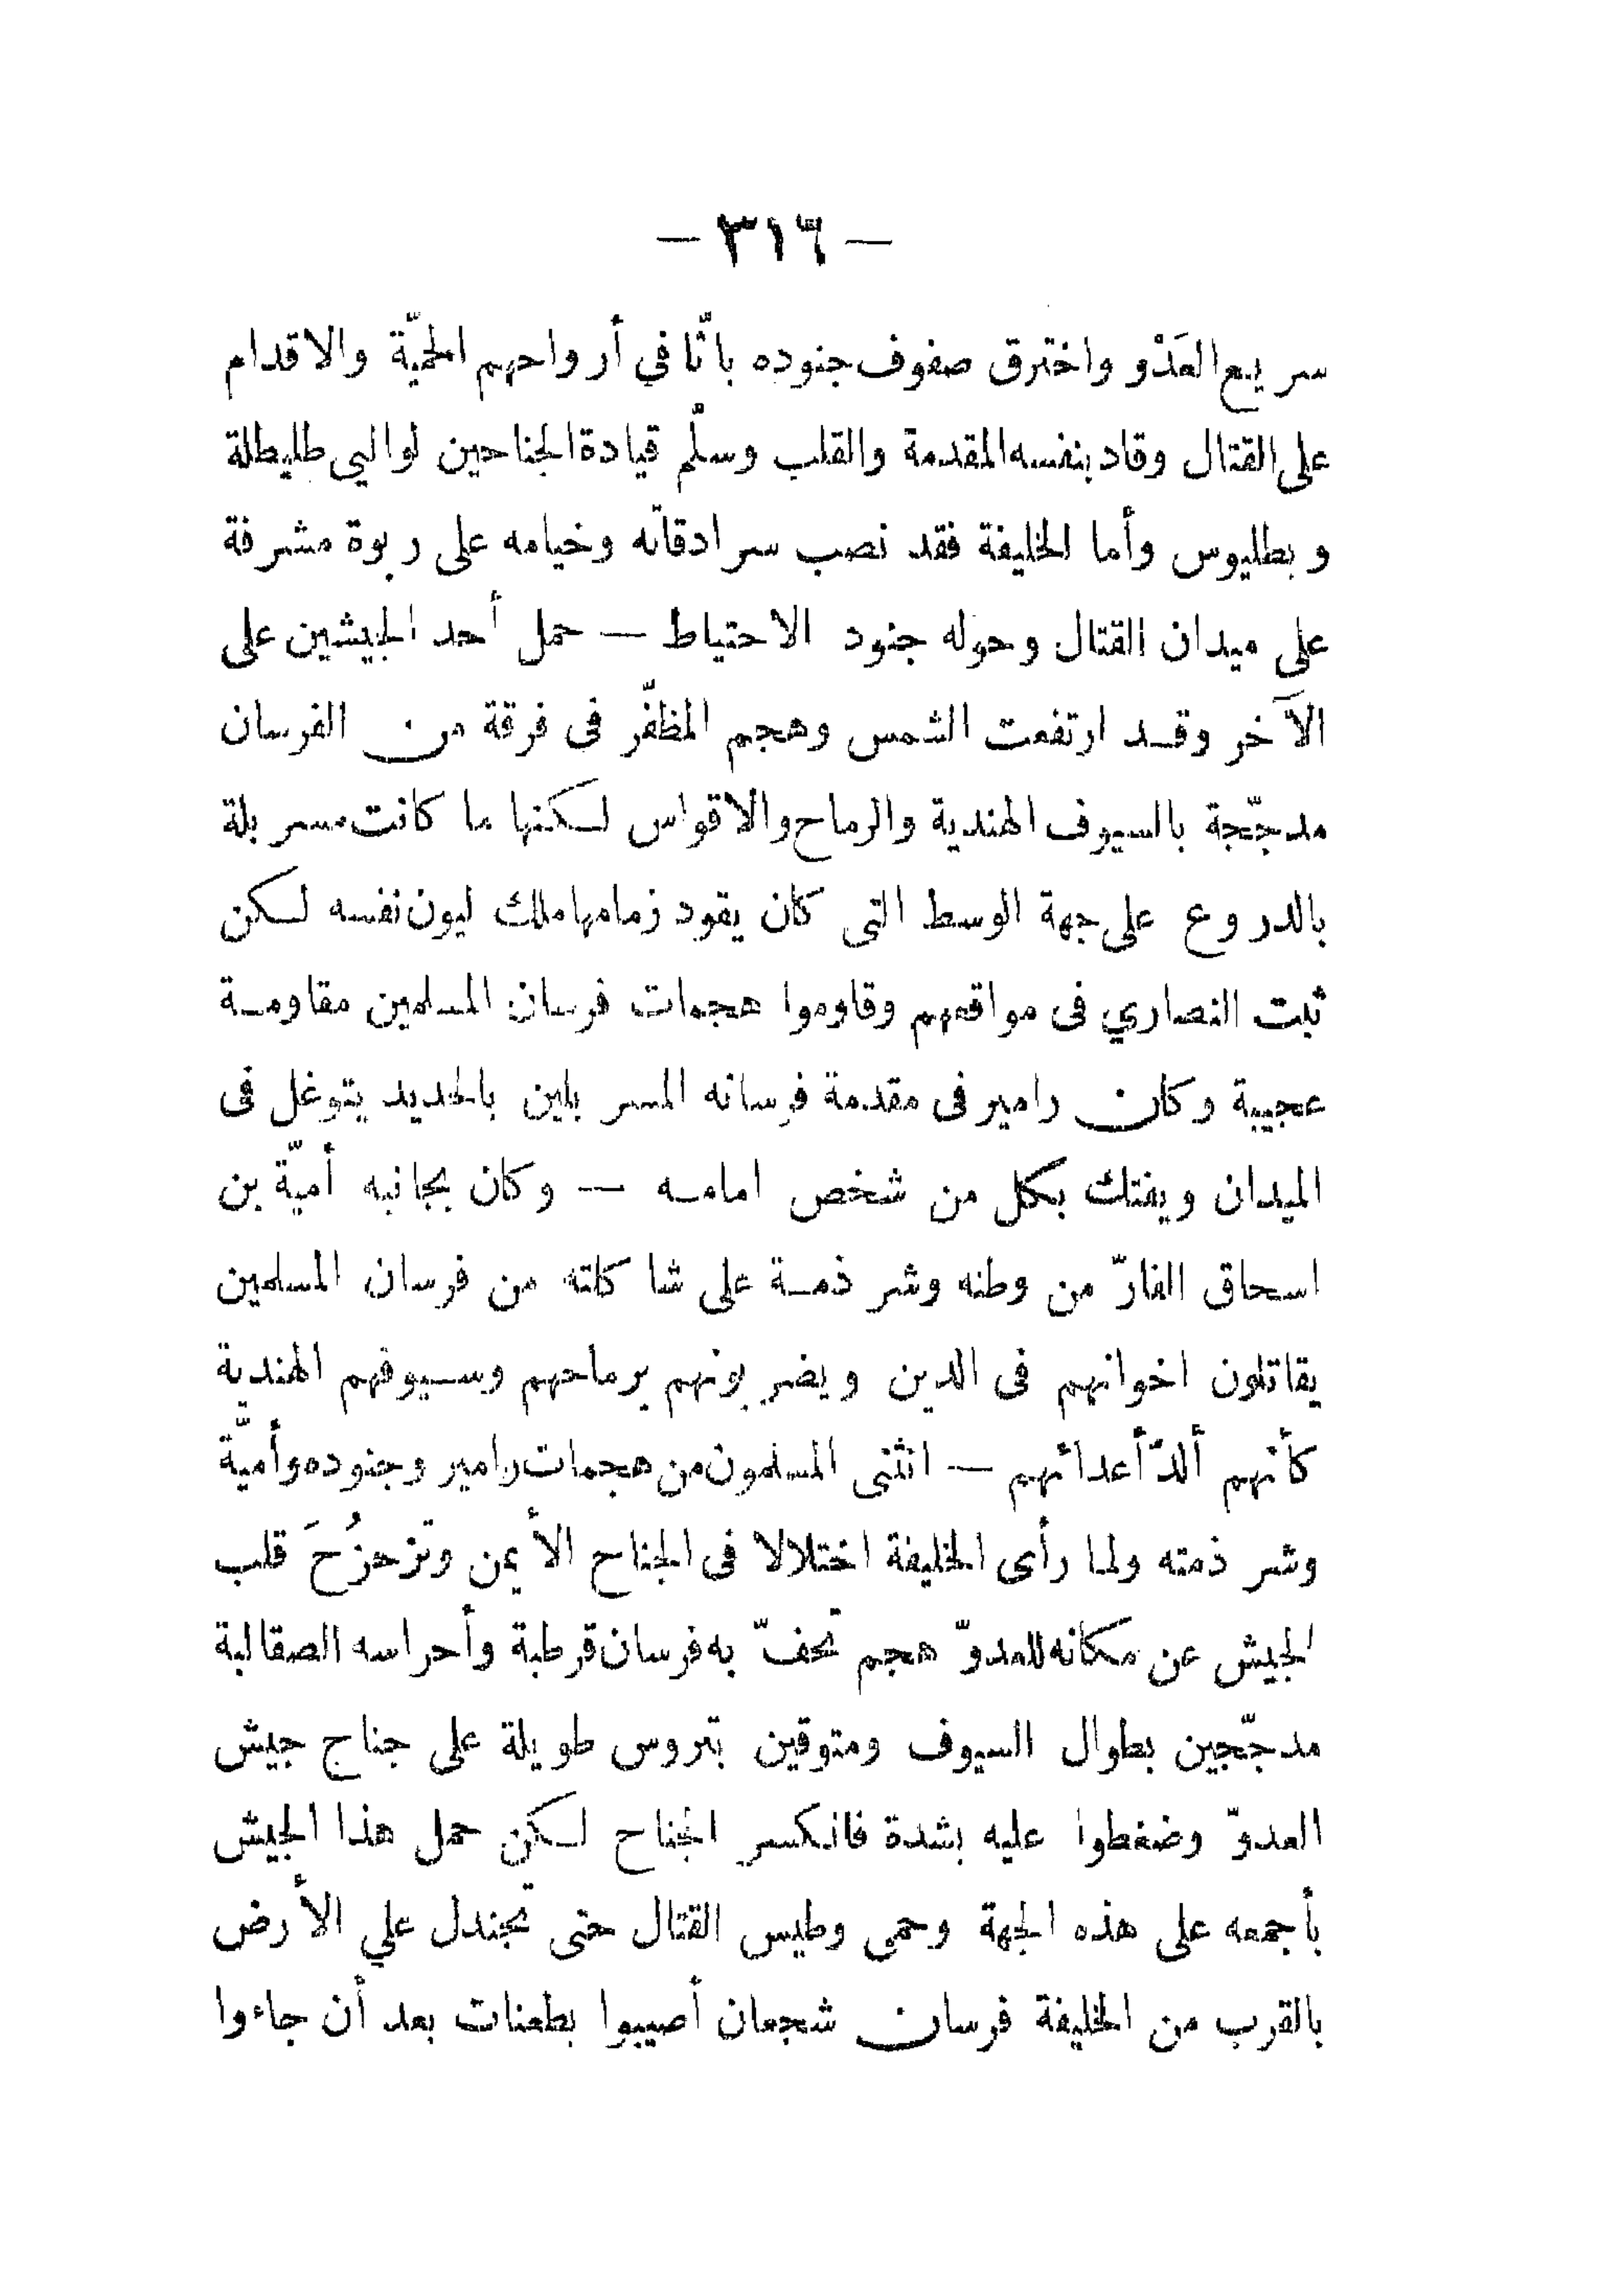 — ٣١٦ —
سريع العَدْو واخترق صفوف جنوده باثّا في أرواحهم الحميّة والاقدام
على القتال وقاد بنفسه المقدمة والقلب وسلّم قيادة الجناحين لواليي طليطلة
وبطليوس وأما الخليفة فقد نصب سرادقاته وخيامه على ربوة مشرفة
على ميدان القتال وحوله جنود الاحتياط — حمل أحد الجيشين على
الآخر وقد ارتفعت الشمس وهجم المظفّر فى فرقة من الفرسان
مدجّجة بالسيوف الهندية والرماح والاقواس لكنها ما كانت مسربلة
بالدروع على جهة الوسط التى كان يقود زمامها ملك ليون نفسه لكن
ثبت النصاري فى مواقعهم وقاوموا هجمات فرسان المسلمين مقاومة
عجيبة وكان رامير فى مقدمة فرسانه المسربلين بالحديد يتوغل فى
الميدان ويفتك بكل من شخص امامه — وكان بجانبه أميّة بن
اسحاق الفارّ من وطنه وشرذمة على شاكلته من فرسان المسلمين
يقاتلون اخوانهم فى الدين ويضربونهم برماحهم وسيوفهم الهندية
كأنهم ألدّ أعدائهم — انثنى المسلمون من هجمات رامير وجنوده وأميّة
وشرذمته ولما رأى الخليفة اختلالا فى الجناح الأيمن وتزحزُحَ قلب
الجيش عن مكانه للعدوّ هجم تحفّ به فرسان قرطبة وأحراسه الصقالبة
مدجّجين بطوال السيوف ومتوقين بتروس طويلة على جناح جيش
العدوّ وضغطوا عليه بشدة فانكسر الجناح لكن حمل هذا الجيش
بأجمعه على هذه الجهة وحمى وطيس القتال حتى تجندل علي الأرض
بالقرب من الخليفة فرسان شجعان أصيبوا بطعنات بعد أن جاءوا